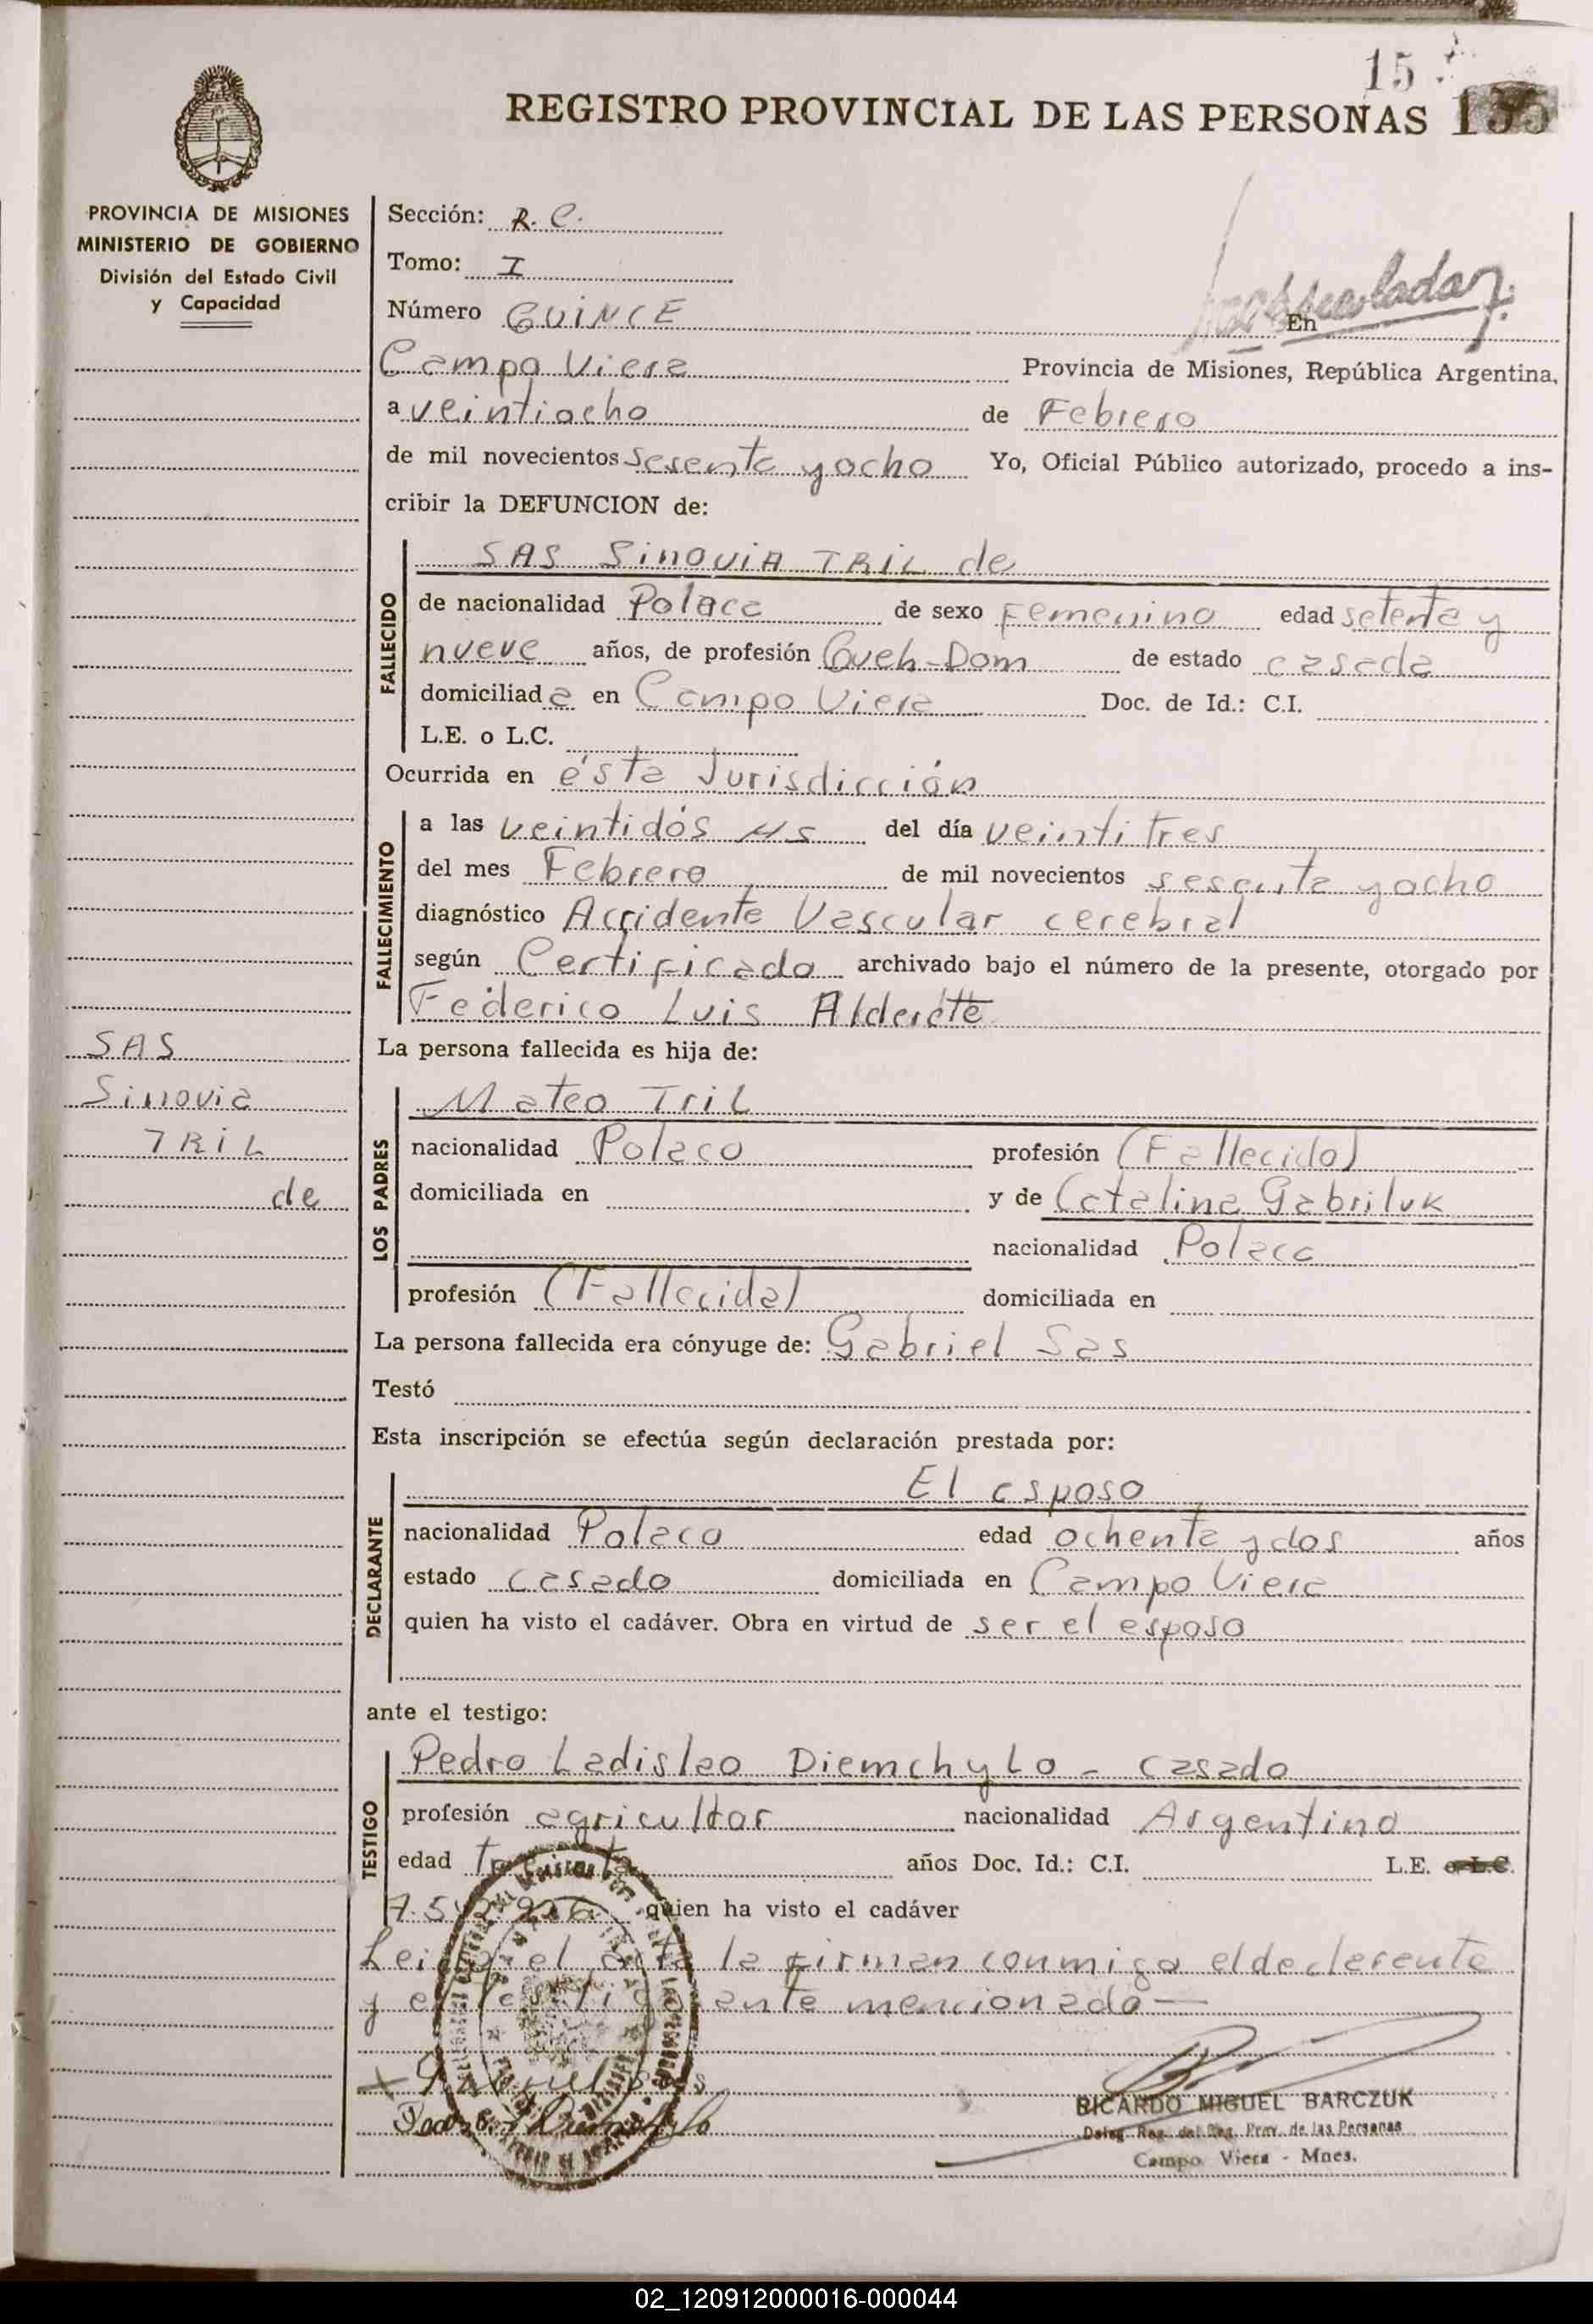 15
REGISTRO PROVINCIAL DE LAS PERSONAS
PROVINCIA DE MISIONES
MINISTERIO DE GOBIERNO
División del Estado Civil
y Capacidad
Sección: R. C.
Tomo: I
Número QUINCE En
Campo Viera Provincia de Misiones, República Argentina,
a veintiocho de Febrero
de mil novecientos sesenta y ocho Yo, Oficial Público autorizado, procedo a ins-
cribir la DEFUNCION de:
SAS Sinovia TRIL de
FALLECIDO
de nacionalidad Polaca de sexo Femenino edad setenta y
nueve años, de profesión Queh-Dom de estado casada
domiciliada en Campo Viera Doc. de Id.: C.I.
L.E. o L.C.
Ocurrida en ésta Jurisdicción
FALLECIMIENTO
a las veintidós Hs del día veintitres
del mes Febrero de mil novecientos sesenta y ocho
diagnóstico Accidente Vascular cerebral
según Certificado archivado bajo el número de la presente, otorgado por
Federico Luis Alderete
SAS
Sinovia
TRIL
de
La persona fallecida es hija de:
LOS PADRES
Mateo Tril
nacionalidad Polaco profesión (Fallecido)
domiciliada en y de Catalina Gabriluk
nacionalidad Polaca
profesión (Fallecida) domiciliada en
La persona fallecida era cónyuge de: Gabriel Sas
Testó
Esta inscripción se efectúa según declaración prestada por:
DECLARANTE
El esposo
nacionalidad Polaco edad ochenta y dos años
estado casado domiciliada en Campo Viera
quien ha visto el cadáver. Obra en virtud de ser el esposo
ante el testigo:
TESTIGO
Pedro Ladislao Diemchylo - casado
profesión agricultor nacionalidad Argentino
edad treinta años Doc. Id.: C.I. L.E. o L.C.
quien ha visto el cadáver
Leida el acta la firman conmigo el declarante
y el testigo ante mencionado—
RICARDO MIGUEL BARCZUK
Deleg. Reg. del Reg. Prov. de las Personas
Campo Viera - Mnes.
02_120912000016-000044